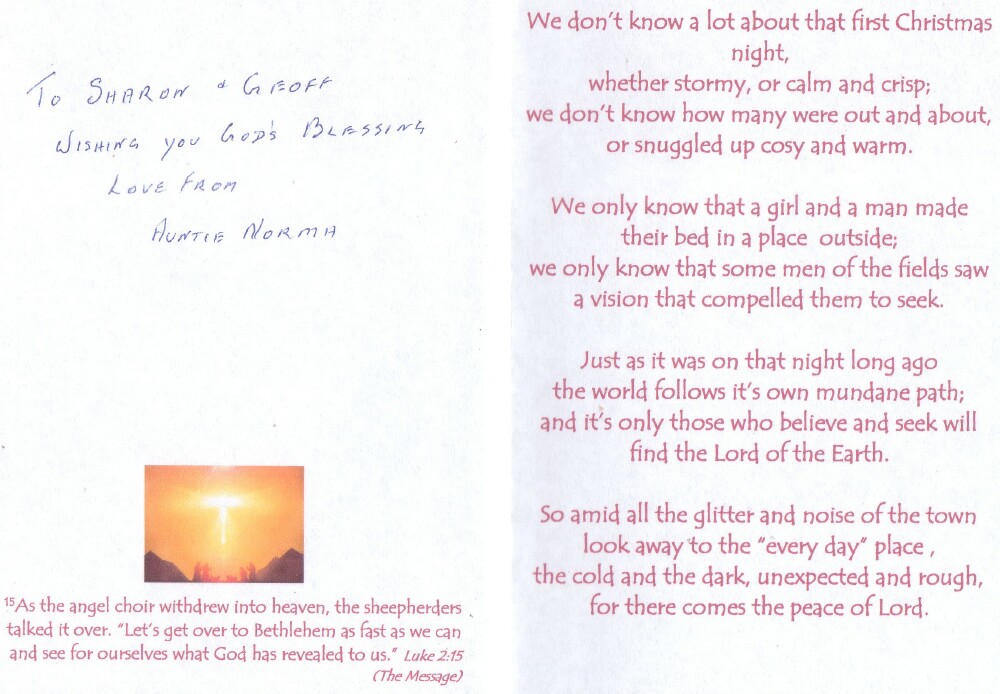 To Sharon & Geoff
Wishing you God's Blessing
Love From
Auntie Norma
15As the angel choir withdrew into heaven, the sheepherders
talked it over. "Let's get over to Bethlehem as fast as we can
and see for ourselves what God has revealed to us." Luke 2:15
(The Message)
We don't know a lot about that first Christmas
night,
whether stormy, or calm and crisp;
we don't know how many were out and about,
or snuggled up cosy and warm.
We only know that a girl and a man made
their bed in a place outside;
we only know that some men of the fields saw
a vision that compelled them to seek.
Just as it was on that night long ago
the world follows it's own mundane path;
and it's only those who believe and seek will
find the Lord of the Earth.
So amid all the glitter and noise of the town
look away to the "every day" place ,
the cold and the dark, unexpected and rough,
for there comes the peace of Lord.